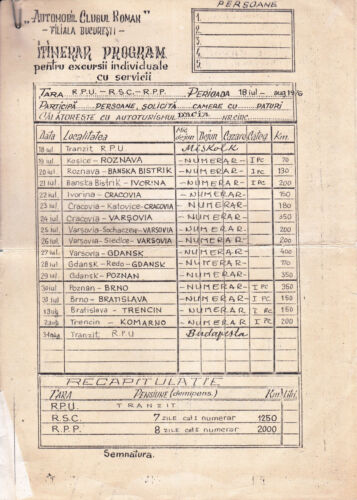 PERSOANE
„AUTOMOBIL CLUBUL ROMAN”
– FILIALA BUCUREȘTI –
1.
2.
3.
4.
5.
ITINERAR PROGRAM
pentru excursii individuale
cu servicii
TARA R.P.U. – R.S.C. – R.P.P. PERIOADA 18 iul – aug 1976
PARTICIPĂ PERSOANE, SOLICITĂ CAMERE CU PATURI
CĂLĂTOREȘTE CU AUTOTURISMUL DACIA NR. CIRC.
Data Localitatea Mic dejun Dejun Cazare Categ Km.
18 iul Tranzit R.P.U Miskolk
19 iul Kosice – ROZNAVA – NUMERAR – I PC 70
20 iul Roznava – BANSKA BISTRIK – NUMERAR – I PC 130
21 iul Banska Bistrik – IVORINA – NUMERAR – I PC 200
22 iul Ivorina – CRACOVIA – NUMERAR – 150
23 iul Cracovia – Katovice – CRACOVIA – NUMERAR – 180
24 iul Cracovia – VARȘOVIA – NUMERAR – 350
25 iul Varsovia – Sochaczew – VARSOVIA – NUMERAR – 200
26 iul Varsovia – Siedlce – VARSOVIA – NUMERAR – 200
27 iul Varsovia – GDANSK – NUMERAR – 400
28 iul Gdansk – Reda – GDANSK – NUMERAR – 110
29 iul Gdansk – POZNAN – NUMERAR – 350
30 iul Poznan – BRNO – NUMERAR – I PC 350
31 iul Brno – BRATISLAVA – NUMERAR – I PC 150
1 aug Bratislava – TRENCIN – NUMERAR – I PC 150
2 aug Trencin – KOMARNO – NUMERAR – I PC 200
3 aug Tranzit R.P.U Budapesta
RECAPITULAȚIE
TARA PENSIUNE (demipens.) Km Litri.
R.P.U. TRANZIT
R.S.C. 7 ZILE cat I numerar 1250
R.P.P. 8 zile cat I numerar 2000
Semnatura.